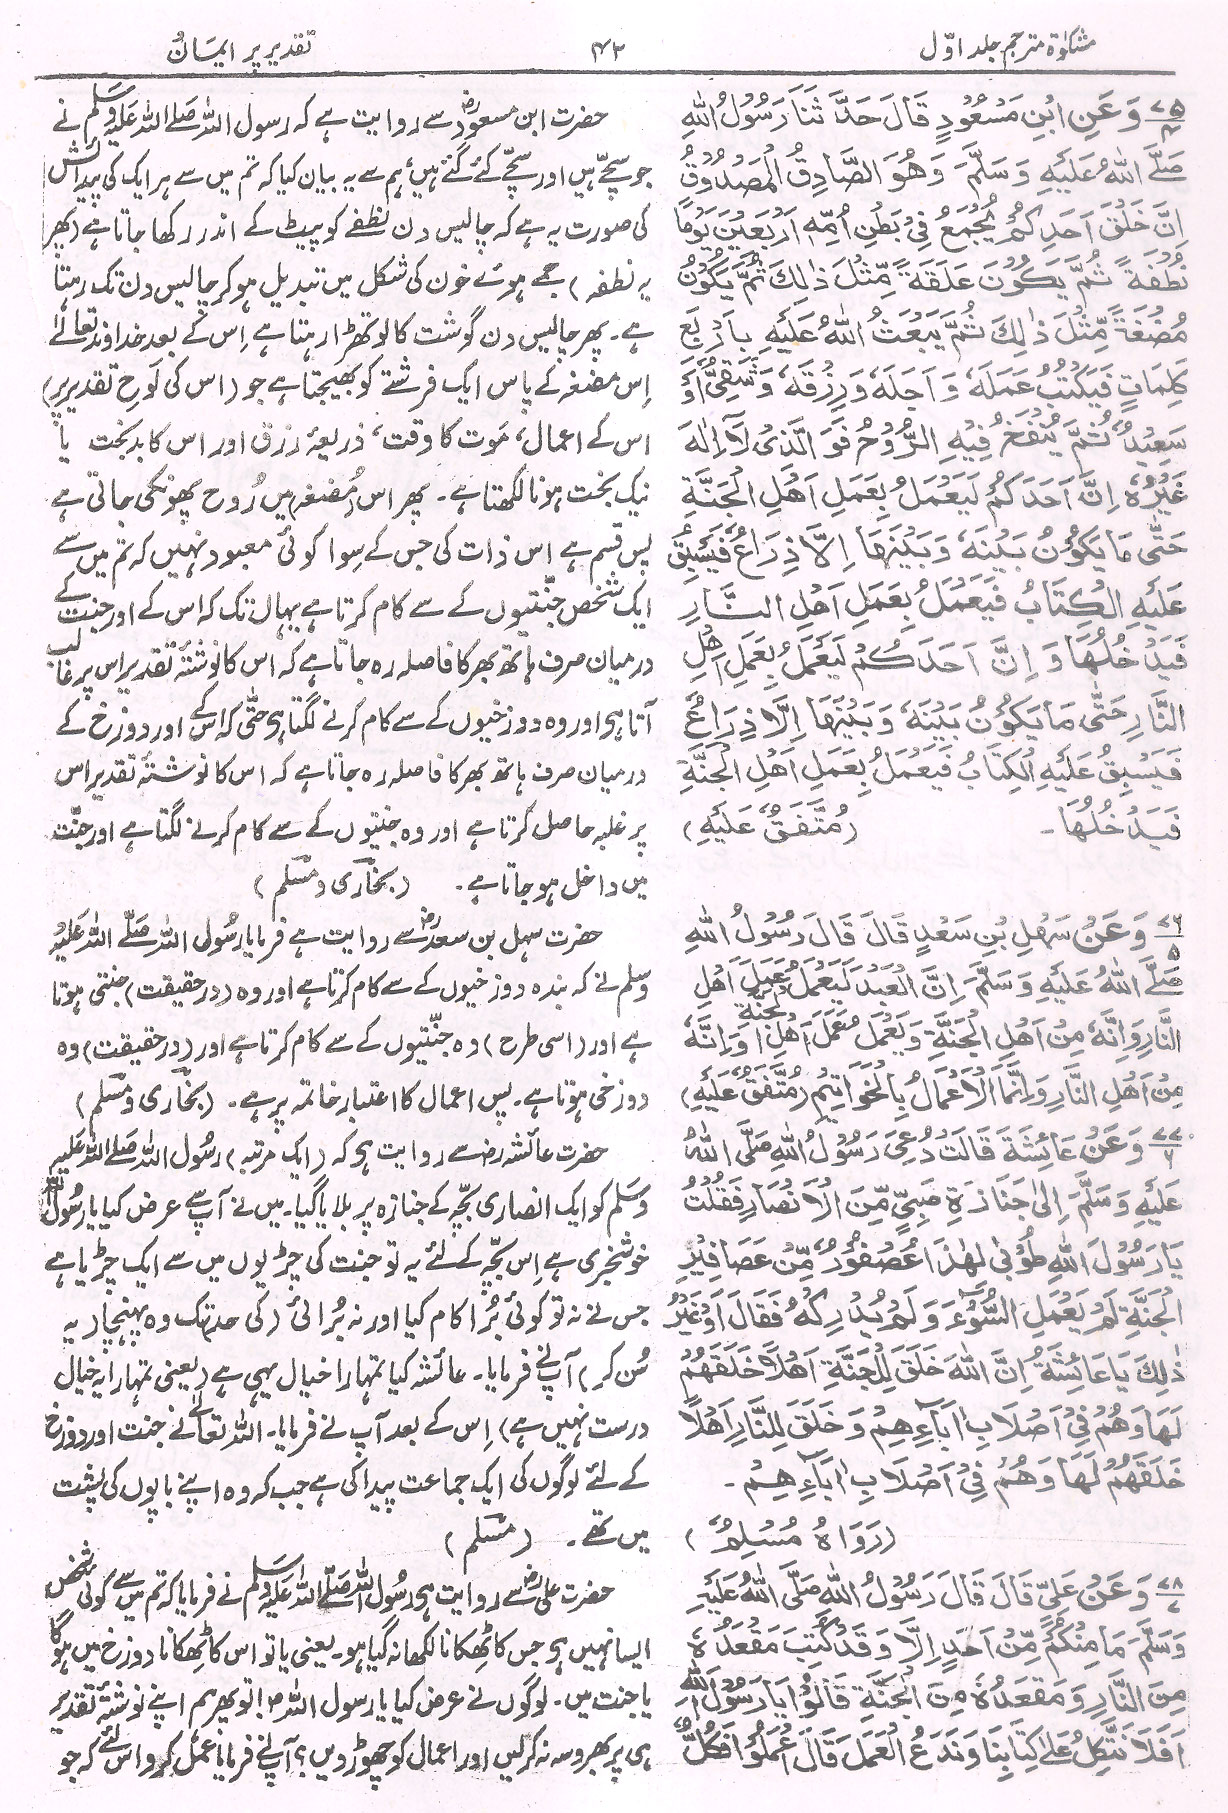 مشکوٰۃ مترجم جلد اوّل
۴۲
تقدیر پر ایمان
۷۵/۴ وَعَنِ ابْنِ مَسْعُوْدٍ قَالَ حَدَّثَنَا رَسُوْلُ اللّٰهِ
صَلَّے اللّٰهُ عَلَيْهِ وَسَلَّمَ وَهُوَ الصَّادِقُ الْمَصْدُوْقُ
اِنَّ خَلْقَ اَحَدِكُمْ يُجْمَعُ فِیْ بَطْنِ اُمِّهٖ اَرْبَعِيْنَ يَوْمًا
نُطْفَةً ثُمَّ يَكُوْنُ عَلَقَةً مِّثْلَ ذٰلِكَ ثُمَّ يَكُوْنُ
مُضْغَةً مِّثْلَ ذٰلِكَ ثُمَّ يَبْعَثُ اللّٰهُ عَلَيْهِ بِاَرْبَعِ
كَلِمَاتٍ فَيَكْتُبُ عَمَلَهٗ وَاَجَلَهٗ وَرِزْقَهٗ وَشَقِیٌّ اَوْ
سَعِيْدٌ ثُمَّ يُنْفَخُ فِيْهِ الرُّوْحُ فَوَ الَّذِیْ لَا اِلٰهَ
غَيْرُهٗ اِنَّ اَحَدَكُمْ لَيَعْمَلُ بِعَمَلِ اَهْلِ الْجَنَّةِ
حَتّٰى مَا يَكُوْنُ بَيْنَهٗ وَبَيْنَهَا اِلَّا ذِرَاعٌ فَيَسْبِقُ
عَلَيْهِ الْكِتَابُ فَيَعْمَلُ بِعَمَلِ اَهْلِ النَّارِ
فَيَدْخُلُهَا وَاِنَّ اَحَدَكُمْ لَيَعْمَلُ بِعَمَلِ اَهْلِ
النَّارِ حَتّٰى مَا يَكُوْنُ بَيْنَهٗ وَبَيْنَهَا اِلَّا ذِرَاعٌ
فَيَسْبِقُ عَلَيْهِ الْكِتَابُ فَيَعْمَلُ بِعَمَلِ اَهْلِ الْجَنَّةِ
فَيَدْخُلُهَا۔ (مُتَّفَقٌ عَلَيْهِ)
۷۶/۵ وَعَنْ سَهْلِ بْنِ سَعْدٍ قَالَ قَالَ رَسُوْلُ اللّٰهِ
صَلَّے اللّٰهُ عَلَيْهِ وَسَلَّمَ اِنَّ الْعَبْدَ لَيَعْمَلُ عَمَلَ اَهْلِ
النَّارِ وَاِنَّهٗ مِنْ اَهْلِ الْجَنَّةِ وَيَعْمَلُ عَمَلَ اَهْلِ الْجَنَّةِ وَاِنَّهٗ
مِنْ اَهْلِ النَّارِ وَاِنَّمَا الْاَعْمَالُ بِالْخَوَاتِيْمِ (مُتَّفَقٌ عَلَيْهِ)
۷۷/۶ وَعَنْ عَائِشَةَ قَالَتْ دُعِیَ رَسُوْلُ اللّٰهِ صَلَّی اللّٰهُ
عَلَيْهِ وَسَلَّمَ اِلٰى جَنَازَةِ صَبِیٍّ مِّنَ الْاَنْصَارِ فَقُلْتُ
يَا رَسُوْلَ اللّٰهِ طُوْبٰی لِهٰذَا عُصْفُوْرٌ مِّنْ عَصَافِيْرِ
الْجَنَّةِ لَمْ يَعْمَلِ السُّوْءَ وَلَمْ يُدْرِكْهُ فَقَالَ اَوْ غَيْرُ
ذٰلِكَ يَا عَائِشَةُ اِنَّ اللّٰهَ خَلَقَ لِلْجَنَّةِ اَهْلًا خَلَقَهُمْ
لَهَا وَهُمْ فِیْ اَصْلَابِ اٰبَآءِهِمْ وَخَلَقَ لِلنَّارِ اَهْلًا
خَلَقَهُمْ لَهَا وَهُمْ فِیْ اَصْلَابِ اٰبَآءِهِمْ۔
(رَوَاهُ مُسْلِمٌ)
۷۸/۷ وَعَنْ عَلِیٍّ قَالَ قَالَ رَسُوْلُ اللّٰهِ صَلَّی اللّٰهُ عَلَيْهِ
وَسَلَّمَ مَا مِنْكُمْ مِّنْ اَحَدٍ اِلَّا وَقَدْ كُتِبَ مَقْعَدُهٗ
مِنَ النَّارِ وَمَقْعَدُهٗ مِنَ الْجَنَّةِ قَالُوْا يَا رَسُوْلَ اللّٰهِ
اَفَلَا نَتَّكِلُ عَلٰى كِتَابِنَا وَنَدَعُ الْعَمَلَ قَالَ اعْمَلُوْا فَكُلٌّ
حضرت ابن مسعودؓ سے روایت ہے کہ رسول اللہ صَلے اللہ علیہ وسلم نے
جو سچّے ہیں اور سچّے کئے گئے ہیں، ہم سے یہ بیان کیا کہ تم میں سے ہر ایک کی پیدائش
کی صورت یہ ہے کہ چالیس دن نطفے کو پیٹ کے اندر رکھا جاتا ہے (پھر
یہ نطفہ) جمے ہوئے خون کی شکل میں تبدیل ہو کر چالیس دن تک رہتا
ہے۔ پھر چالیس دن گوشت کا لوتھڑا رہتا ہے اِس کے بعد خداوند تعالٰے
اِس مضغہ کے پاس ایک فرشتے کو بھیجتا ہے جو (اس کی لَوحِ تقدیر پر)
اس کے اعمال، مَوت کا وقت، ذریعۂ رزق اور اس کا بدبخت یا
نیک بخت ہونا لکھتا ہے۔ پھر اس مُضغہ میں رُوح پھونکی جاتی ہے
پس قسم ہے اس ذات کی جس کے سِوا کوئی معبود نہیں کہ تم میں سے
ایک شخص جنّتیوں کے سے کام کرتا ہے یہاں تک کہ اس کے اور جنت کے
درمیان صرف ہاتھ بھر کا فاصلہ رہ جاتا ہے کہ اس کا نوشتۂ تقدیر اس پر غالب
آتا ہی اور وہ دوزخیوں کے سے کام کرنے لگتا ہی حتّٰی کہ اس کے اور دوزخ کے
درمیان صرف ہاتھ بھر کا فاصلہ رہ جاتا ہے کہ اس کا نوشتۂ تقدیر اس
پر غلبہ حاصل کرتا ہے اور وہ جنتیوں کے سے کام کرنے لگتا ہے اور جنّت
میں داخل ہو جاتا ہے۔ (بخاری و مسلم)
حضرت سہل بن سعدؓ سے روایت ہے فرمایا رسُول اللہ صَلّے اللہ عَلیہ
وسلم نے کہ بندہ دوزخیوں کے سے کام کرتا ہے اور وہ (درحقیقت) جنتی ہوتا
ہے اور (اسی طرح) وہ جنّتیوں کے سے کام کرتا ہے اور (درحقیقت) وہ
دوزخی ہوتا ہے۔ پس اعمال کا اعتبار خاتمہ پر ہے۔ (بخاری و مسلم)
حضرت عائشہؓ سے روایت ہی کہ (ایک مرتبہ) رسُول اللہ صَلے اللہ عَلیہ
وسَلم کو ایک انصاری بچّہ کے جنازہ پر بلایا گیا۔ میں نے آپ سے عرض کیا یا رسُول اللہ
خوشخبری ہے اِس بچّہ کے لئے یہ تو جنت کی چڑیوں میں سے ایک چڑیا ہے
جس نے نہ تو کوئی بُرا کام کیا اور نہ بُرائی (کی حد) تک وہ پہنچا (یہ
سُن کر) آپ نے فرمایا۔ عائشہ کیا تمہارا خیال یہی ہے (یعنی تمہارا یہ خیال
درست نہیں ہے) اِس کے بعد آپ نے فرمایا۔ اللہ تعالٰے نے جنت اور دوزخ
کے لئے لوگوں کی ایک جماعت پیدا کی ہے جب کہ وہ اپنے باپوں کی پشت
میں تھے۔ (مسلم)
حضرت علیؓ سے روایت ہی رسُول اللہ صَلّے اللہ عَلیہ وسلم نے فرمایا کہ تم میں سے کوئی شخص
ایسا نہیں ہی جس کا ٹھکانا لکھا نہ گیا ہو۔ یعنی یا تو اس کا ٹھکانا دوزخ میں ہوگا
یا جنت میں۔ لوگوں نے عرض کیا یا رسول اللہ! تو پھر ہم اپنے نوشتۂ تقدیر
ہی پر بھروسہ نہ کرلیں اور اعمال کو چھوڑ دیں؟ آپ نے فرمایا عمل کرو اس لئے کہ جو